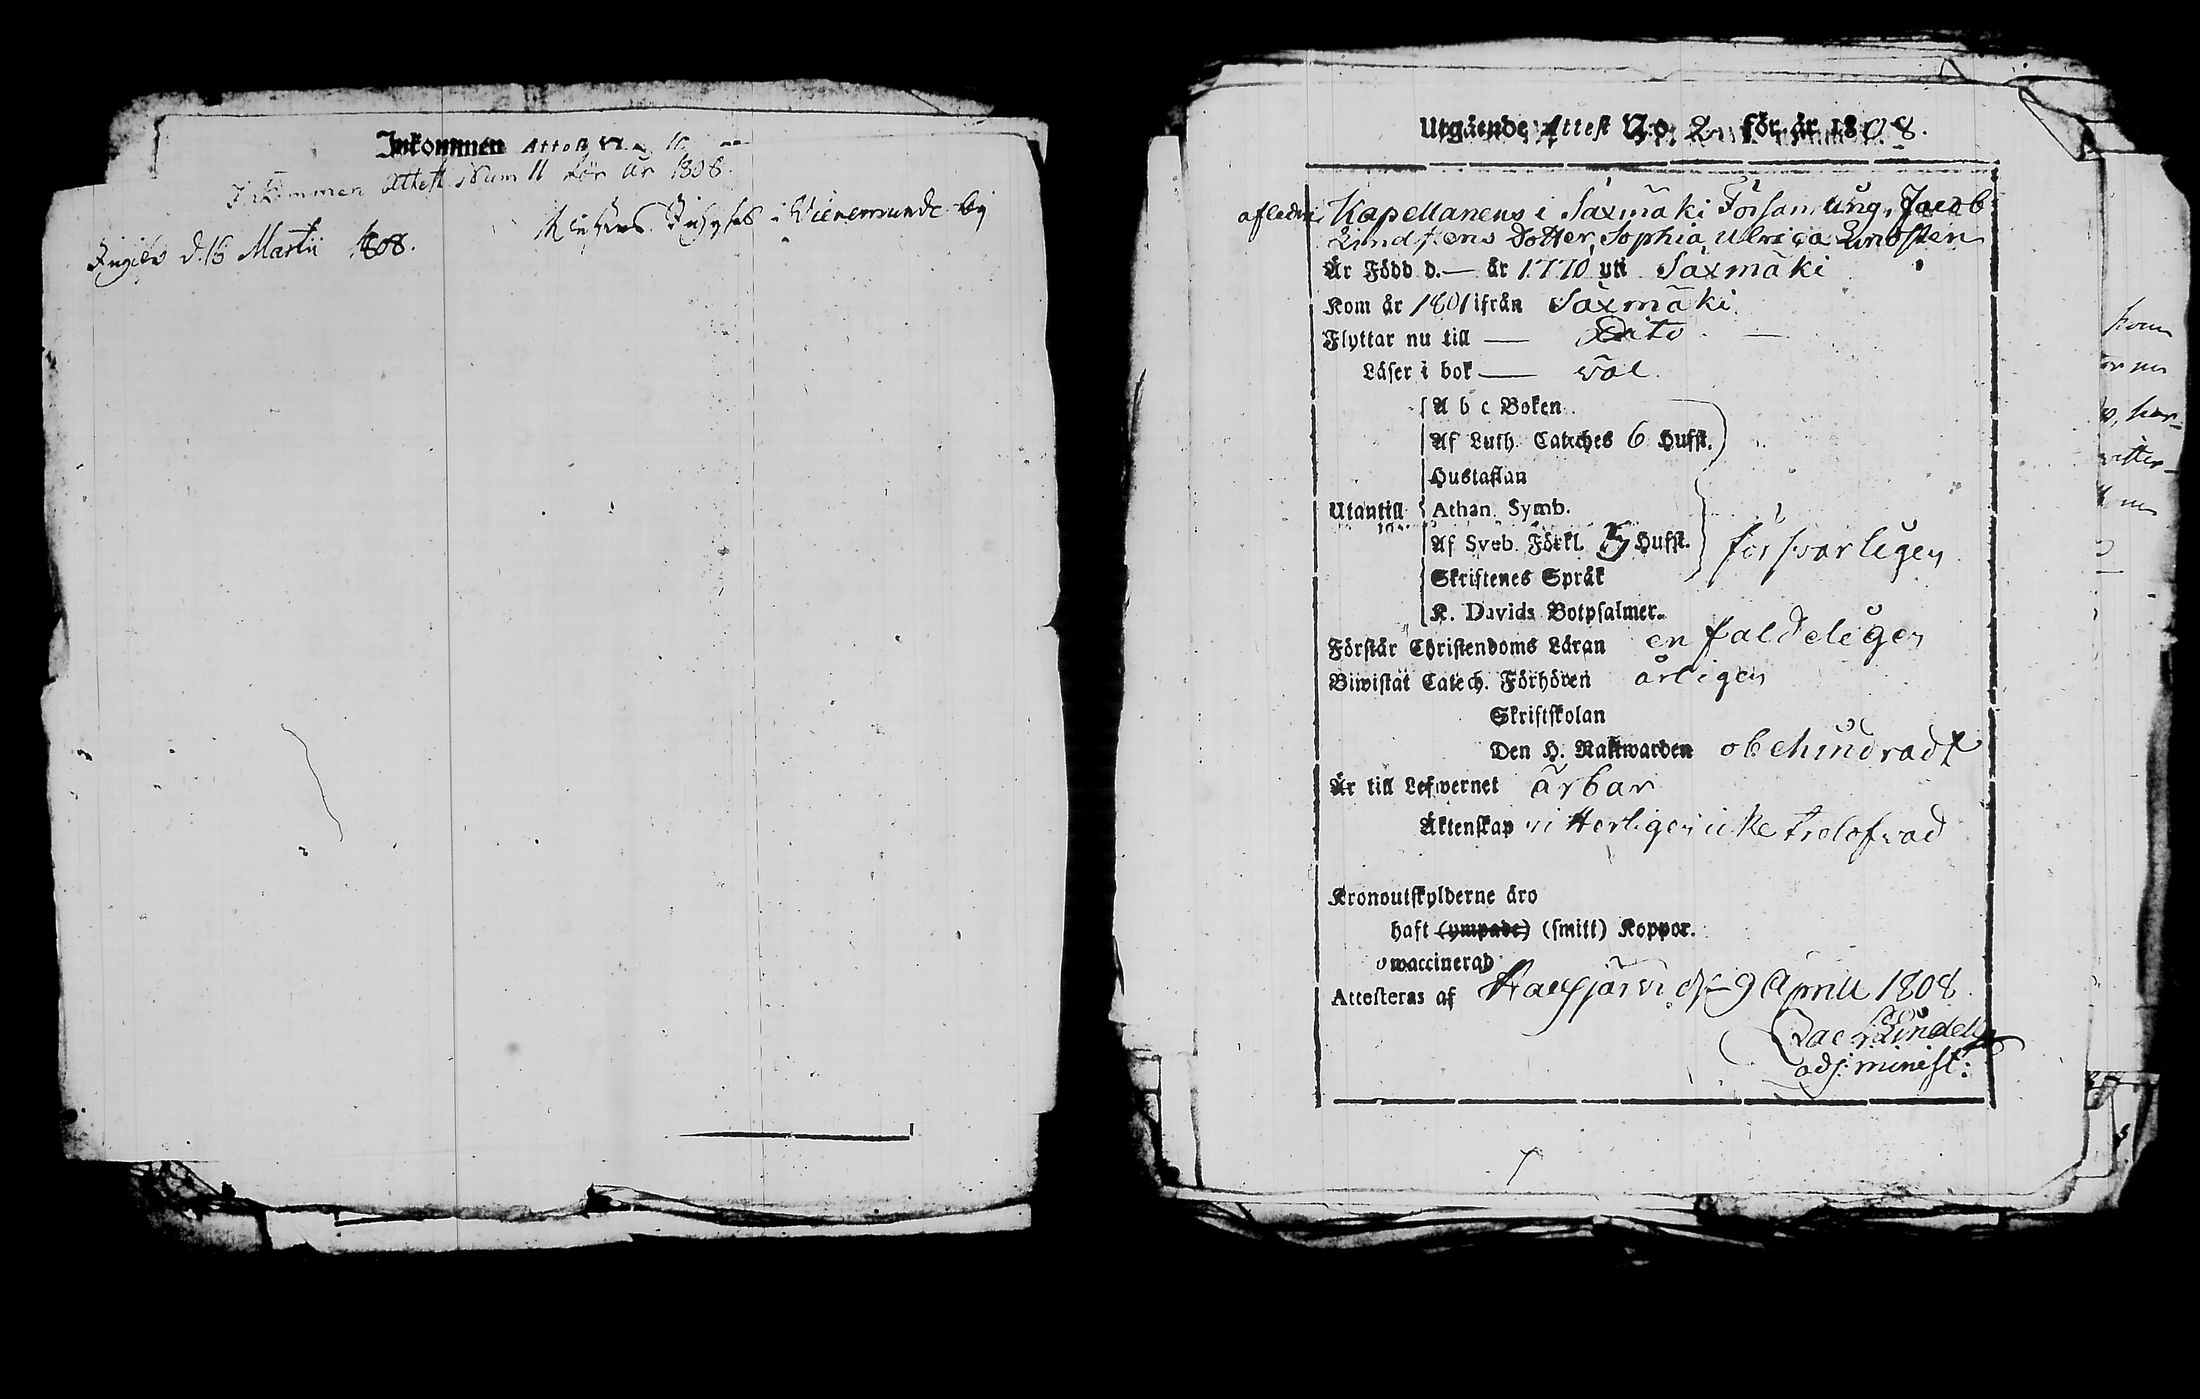 Inkommen Attest N:o 11
Inkommen Attest Num 11 för år 1808.
i Wieremunde by
Ingifv d. 16 Martii 1808.
Utgående Attest N:o 2 för år 1808.
afledne Kapellanens i Säxmäki Församling, Jacob
Lindstens Dotter, Sophia Ulrica Lindsten
Är Född d. — år 1770 uti Säxmäki
Kom år 1801 ifrån Säxmäki
Flyttar nu till — Dito —
Läser i bok — väl.
A b c Boken
Af Luth. Cateches 6 Hufst.
Hustaflan
Utantill Athan. Symb.
Af Sveb. Förkl. 5 Hufst. försvarligen
Skriftenes Språk
K. Davids Botpsalmer.
Förstår Christendoms Läran enfaldeligen
Biwistat Catech. Förhören årligen
Skriftskolan
Den H. Nattwarden obehindradt
Är till Lefwernet ärbar
Äktenskap vitterligen icke trolofvad
Kronoutskylderne äro
haft (ympade) (smitt) Koppor.
owaccinerad
Attesteras af d. 9 Aprill 1808.
Lindell
adj: minist:
kom